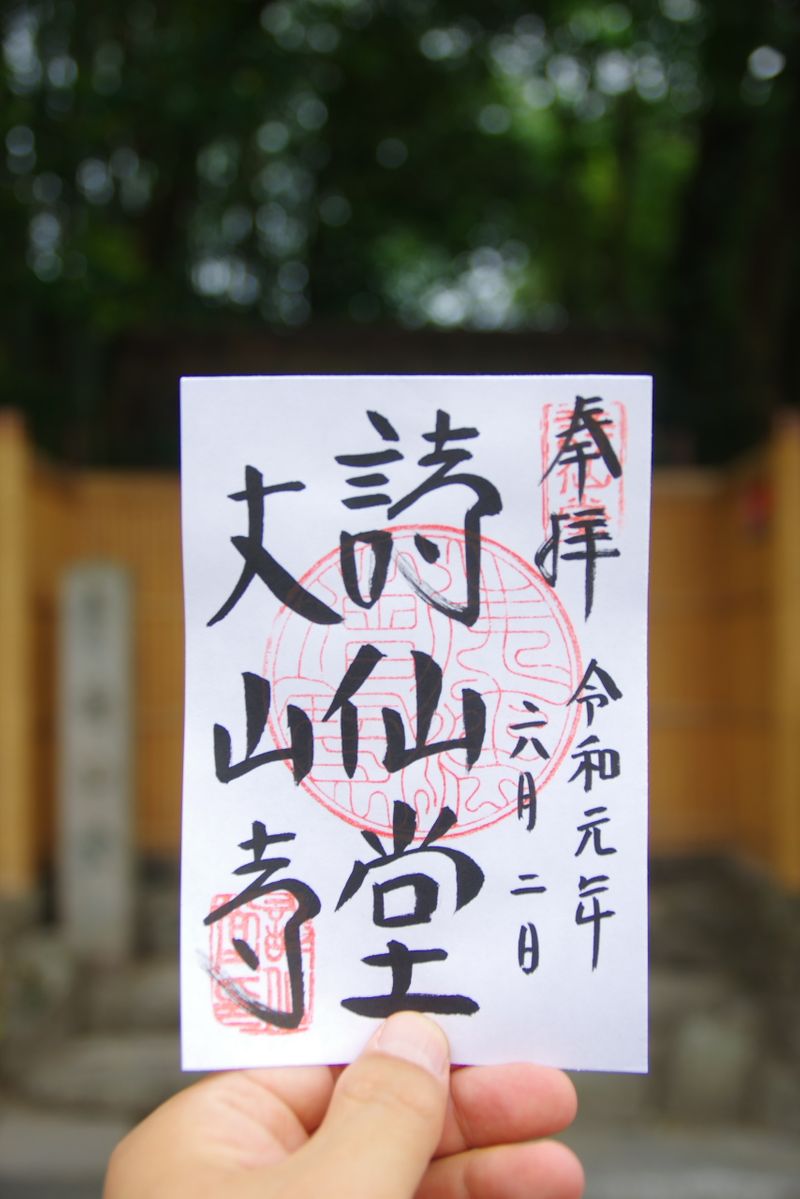 奉拝
令和元年
六月二日
詩仙堂
丈山寺